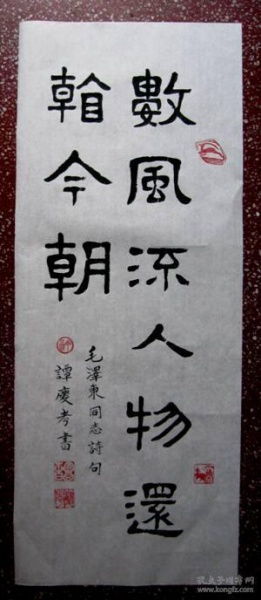 數風流人物還
看今朝
毛澤東同志詩句
譚慶考書
孔夫子旧书网
www.kongfz.com